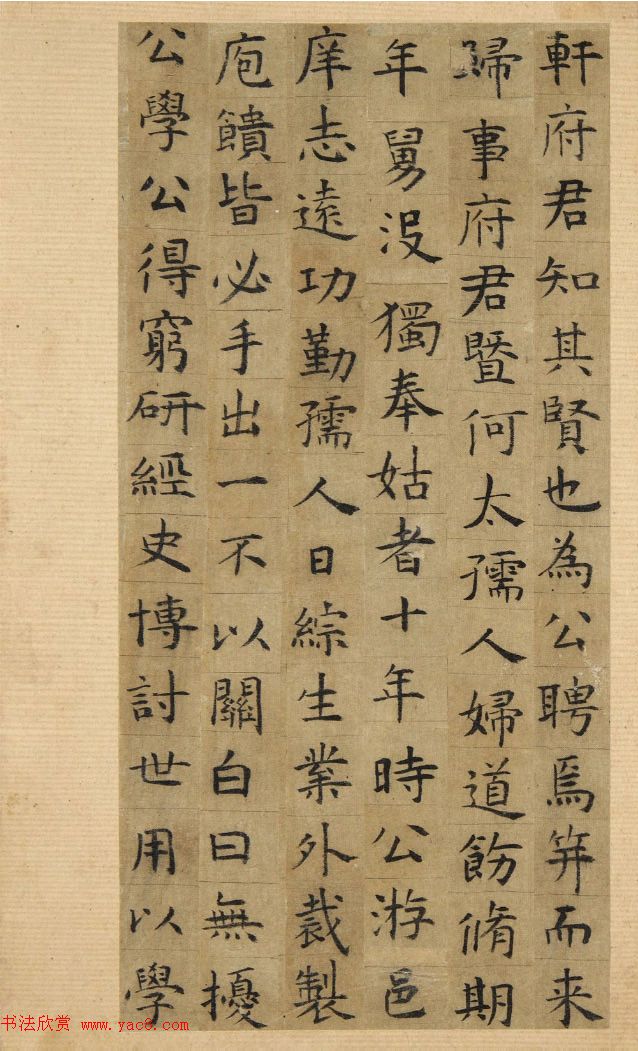 軒府君知其賢也為公聘焉笄而来
歸事府君暨何太孺人婦道飭脩期
年舅没獨奉姑者十年時公游邑
庠志遠功勤孺人日綜生業外裁製
庖饋皆必手出一不以關白曰無擾
公學公得窮研經史博討世用以學
书法欣赏 www.yac8.com